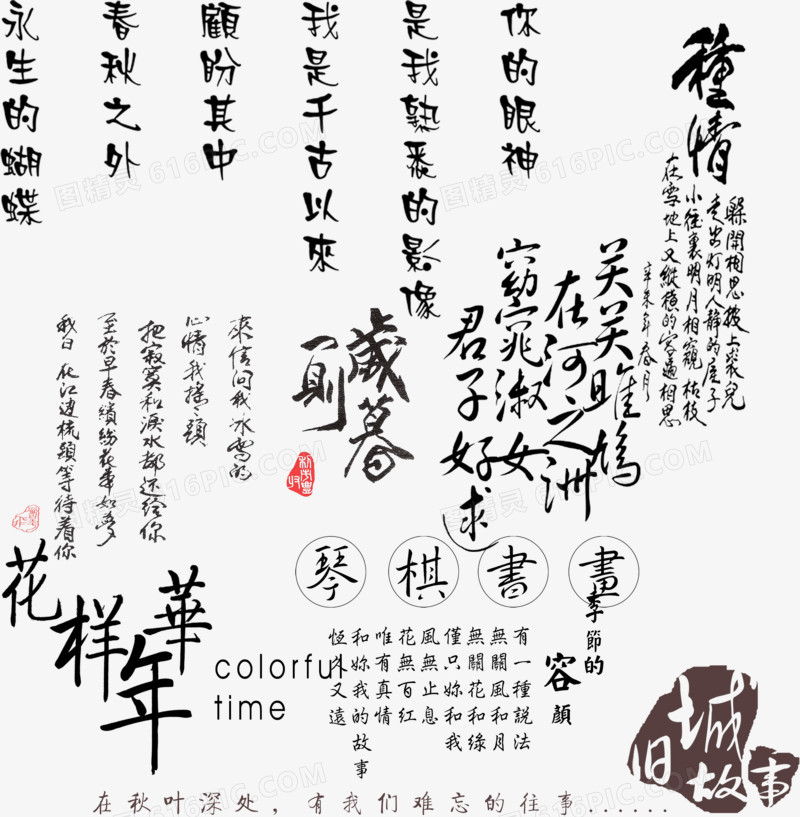 你的眼神
是我熟悉的影像
我是千古以來
顧盼其中
春秋之外
永生的蝴蝶
種情
躲開相思披上裘兒
走出灯明人静的屋子
小徑裏明月相窺枯枝
在雪地上又縱橫的寫遍相思
辛未年春月
关关雎鳩
在河之洲
窈窕淑女
君子好逑
歲暮
一則
來信问我冰雪的
心情我搖搖頭
把寂寞和淚水都还给你
至於早春繽紛花事如夢
我日日在江边梳頭等待着你
琴棋書畫
花样年華
colorful
time
季節的
容顏
有一種説法
無關風和月
無關花和綠
僅只妳和我
風無止息
花無百红
唯有真情
和妳我的故事
恆久又遠
旧城
故事
在秋叶深处，有我们难忘的往事......
图精灵 616PIC.COM